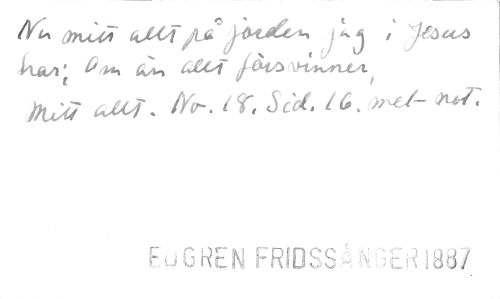 Nu mitt allt på jorden jag i Jesus
har; Om än allt försvinner,
Mitt allt. No. 18. Sid. 16. met-not.
EDGREN FRIDSSÅNGER 1887